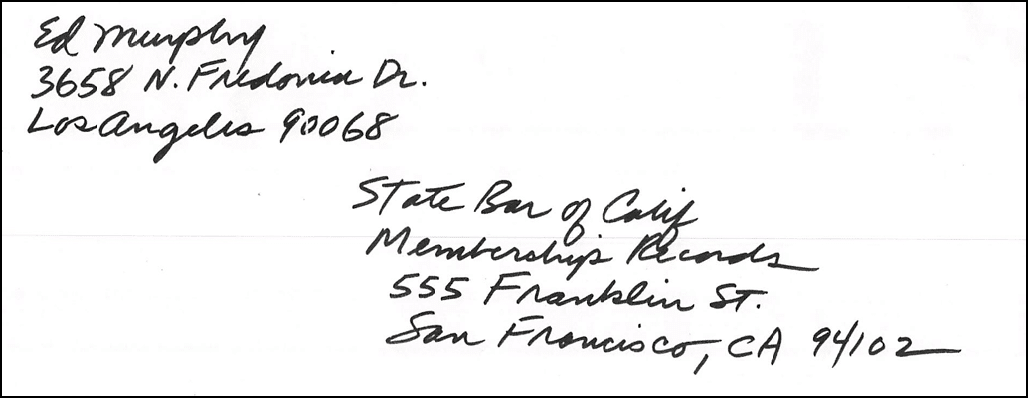 Ed Murphy
3658 N. Fredonia Dr.
Los Angeles 90068
State Bar of Calif
Membership Records
555 Franklin St.
San Francisco, CA 94102